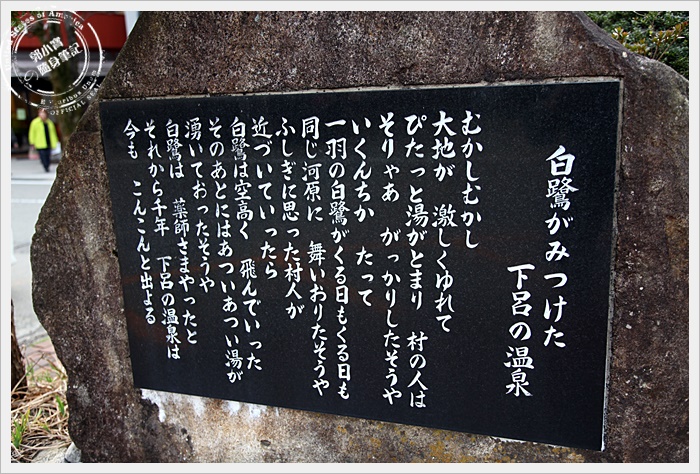 白鷺がみつけた
下呂の温泉
むかしむかし
大地が 激しくゆれて
ぴたっと湯がとまり 村の人は
そりゃあ がっかりしたそうや
いくんちか たって
一羽の白鷺がくる日もくる日も
同じ河原に 舞いおりたそうや
ふしぎに思った村人が
近づいていったら
白鷺は空高く 飛んでいった
そのあとにはあついあつい湯が
湧いておったそうや
白鷺は 薬師さまやったと
それから千年 下呂の温泉は
今も こんこんと出よる
郭小寶
隨身筆記